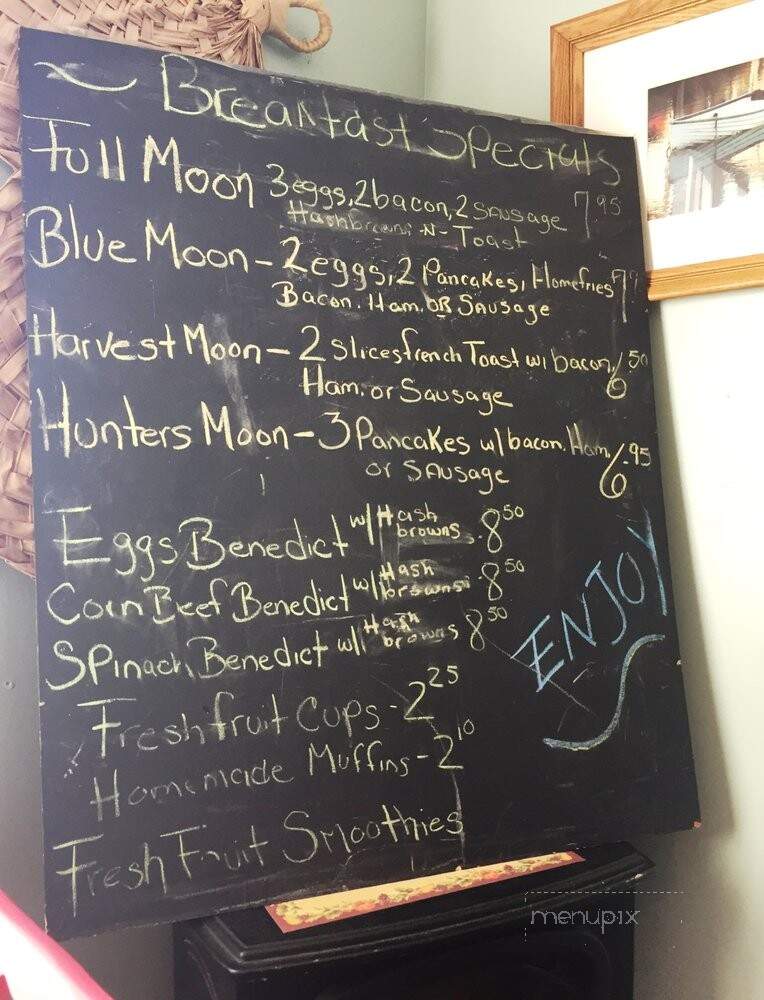 ~ Breakfast Specials
Full Moon 3 eggs, 2 bacon, 2 Sausage 7.95
Hashbrowns -N- Toast
Blue Moon - 2 eggs, 2 Pancakes, Homefries
Bacon, Ham, OR Sausage
Harvest Moon - 2 slices french Toast w/ bacon, 6.50
Ham, or Sausage
Hunters Moon - 3 Pancakes w/ bacon, Ham, 6.95
or Sausage
Eggs Benedict w/ Hash browns 8.50
Corn Beef Benedict w/ Hash browns 8.50
Spinach Benedict w/ Hash browns 8.50
Fresh fruit Cups - 2.25
Homemade Muffins - 2.10
Fresh Fruit Smoothies
ENJOY
menupix